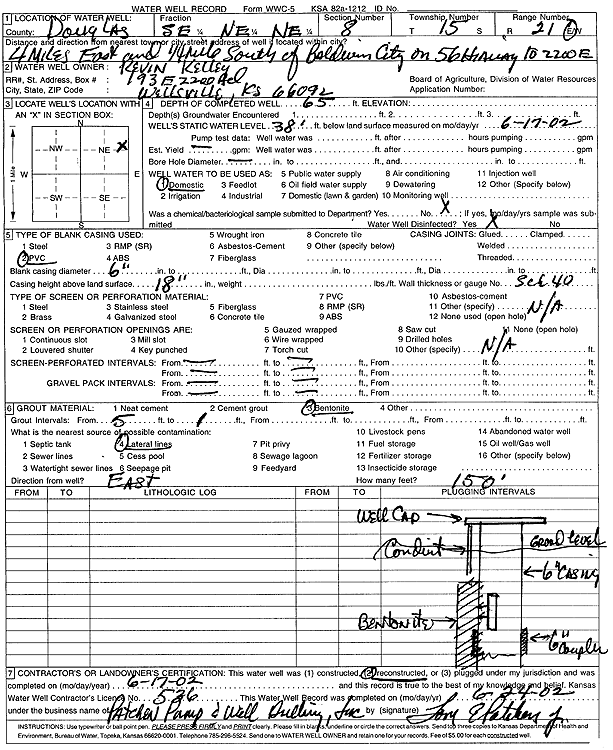 WATER WELL RECORD Form WWC-5 KSA 82a-1212 ID No.
1 LOCATION OF WATER WELL: Fraction Section Number Township Number Range Number
County: Douglas SE ¼ NE ¼ NE ¼ 8 T 15 S R 21 E/W
Distance and direction from nearest town or city street address of well if located within city?
4 Miles East and 1/4 Mile South of Baldwin City on 56 Highway to 2200 E
2 WATER WELL OWNER: Kevin Kelley
RR#, St. Address, Box # : 193 E 2200 Rd Board of Agriculture, Division of Water Resources
City, State, ZIP Code : Wellsville, KS 66092 Application Number:
3 LOCATE WELL'S LOCATION WITH AN "X" IN SECTION BOX:
N
NW NE X
W E
SW SE
S
1 Mile
4 DEPTH OF COMPLETED WELL 65 ft. ELEVATION:
Depth(s) Groundwater Encountered 1. ft. 2. ft. 3. ft.
WELL'S STATIC WATER LEVEL 38' ft. below land surface measured on mo/day/yr 6-17-02
Pump test data: Well water was ft. after hours pumping gpm
Est. Yield — gpm: Well water was ft. after hours pumping gpm
Bore Hole Diameter — in. to ft., and in. to ft.
WELL WATER TO BE USED AS: 5 Public water supply 8 Air conditioning 11 Injection well
1 Domestic 3 Feedlot 6 Oil field water supply 9 Dewatering 12 Other (Specify below)
2 Irrigation 4 Industrial 7 Domestic (lawn & garden) 10 Monitoring well
Was a chemical/bacteriological sample submitted to Department? Yes No X; If yes, mo/day/yrs sample was submitted Water Well Disinfected? Yes X No
5 TYPE OF BLANK CASING USED: 5 Wrought iron 8 Concrete tile CASING JOINTS: Glued Clamped
1 Steel 3 RMP (SR) 6 Asbestos-Cement 9 Other (specify below) Welded
2 PVC 4 ABS 7 Fiberglass Threaded
Blank casing diameter 6" in. to ft., Dia in. to ft., Dia in. to ft.
Casing height above land surface 18" in., weight lbs./ft. Wall thickness or gauge No. Sch 40
TYPE OF SCREEN OR PERFORATION MATERIAL: 7 PVC 10 Asbestos-cement
1 Steel 3 Stainless steel 5 Fiberglass 8 RMP (SR) 11 Other (specify) N/A
2 Brass 4 Galvanized steel 6 Concrete tile 9 ABS 12 None used (open hole)
SCREEN OR PERFORATION OPENINGS ARE: 5 Gauzed wrapped 8 Saw cut 11 None (open hole)
1 Continuous slot 3 Mill slot 6 Wire wrapped 9 Drilled holes
2 Louvered shutter 4 Key punched 7 Torch cut 10 Other (specify) N/A ft.
SCREEN-PERFORATED INTERVALS: From — ft. to — ft., From ft. to ft.
From — ft. to — ft., From ft. to ft.
GRAVEL PACK INTERVALS: From — ft. to — ft., From ft. to ft.
From — ft. to — ft., From ft. to ft.
6 GROUT MATERIAL: 1 Neat cement 2 Cement grout 3 Bentonite 4 Other
Grout Intervals: From 5 ft. to 1 ft., From ft. to ft., From ft. to ft.
What is the nearest source of possible contamination: 10 Livestock pens 14 Abandoned water well
1 Septic tank 4 Lateral lines 7 Pit privy 11 Fuel storage 15 Oil well/Gas well
2 Sewer lines 5 Cess pool 8 Sewage lagoon 12 Fertilizer storage 16 Other (specify below)
3 Watertight sewer lines 6 Seepage pit 9 Feedyard 13 Insecticide storage
Direction from well? East How many feet? 150'
FROM TO LITHOLOGIC LOG FROM TO PLUGGING INTERVALS
Well Cap
Conduit Ground Level
6" Casing
Bentonite 6" Coupler
7 CONTRACTOR'S OR LANDOWNER'S CERTIFICATION: This water well was (1) constructed, (2) reconstructed, or (3) plugged under my jurisdiction and was
completed on (mo/day/year) 6-17-02 and this record is true to the best of my knowledge and belief. Kansas
Water Well Contractor's License No. 536 This Water Well Record was completed on (mo/day/yr)
under the business name of Pump & Well Drilling, Inc by (signature)
INSTRUCTIONS: Use typewriter or ball point pen. PLEASE PRESS FIRMLY and PRINT clearly. Please fill in blanks, underline or circle the correct answers. Send top three copies to Kansas Department of Health and
Environment, Bureau of Water, Topeka, Kansas 66620-0001. Telephone 785-296-5524. Send one to WATER WELL OWNER and retain one for your records. Fee of $5.00 for each constructed well.